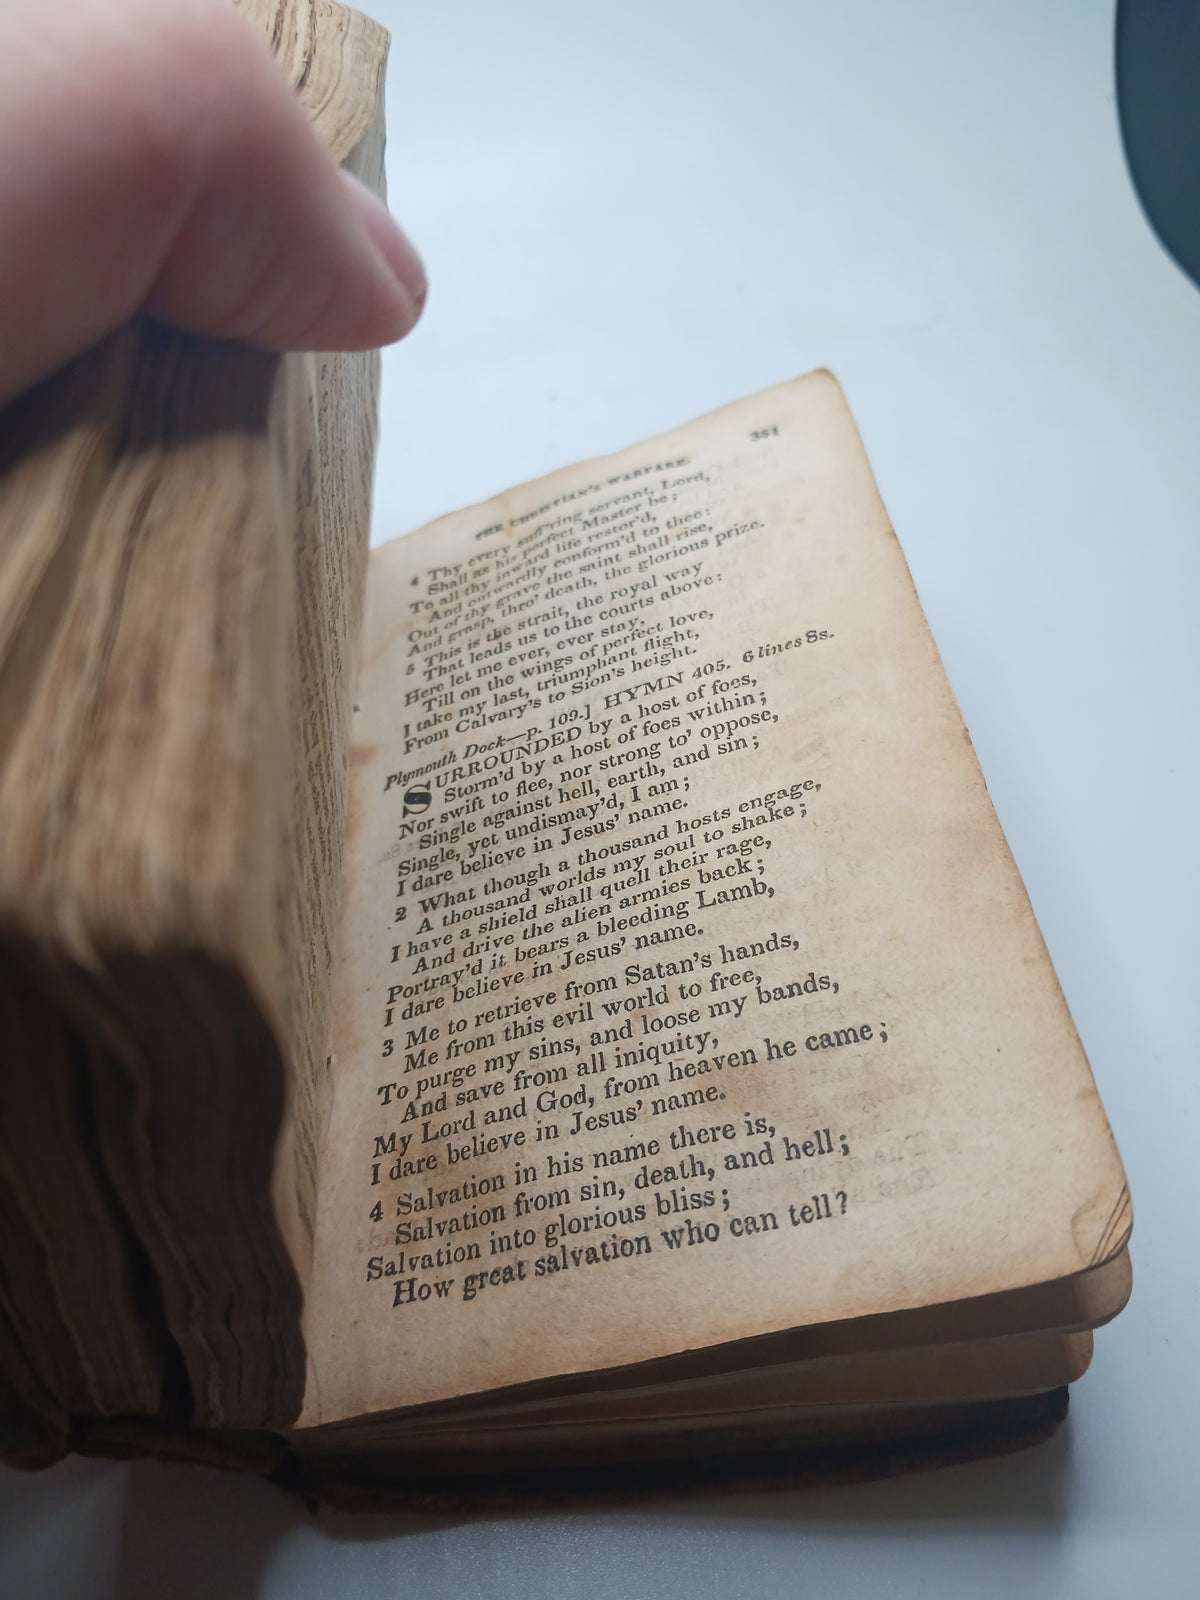 THE CHRISTIAN'S WARFARE. 351
4 Thy every suff'ring servant, Lord,
Shall as his perfect Master be;
To all thy inward life restor'd,
And outwardly conform'd to thee:
Out of thy grave the saint shall rise,
And grasp, thro' death, the glorious prize.
5 This is the strait, the royal way
That leads us to the courts above:
Here let me ever, ever stay,
Till on the wings of perfect love,
I take my last, triumphant flight,
From Calvary's to Sion's height.
Plymouth Dock—p. 109.] HYMN 405. 6 lines 8s.
SURROUNDED by a host of foes,
Storm'd by a host of foes within;
Nor swift to flee, nor strong to' oppose,
Single against hell, earth, and sin;
Single, yet undismay'd, I am;
I dare believe in Jesus' name.
2 What though a thousand hosts engage,
A thousand worlds my soul to shake;
I have a shield shall quell their rage,
And drive the alien armies back;
Portray'd it bears a bleeding Lamb,
I dare believe in Jesus' name.
3 Me to retrieve from Satan's hands,
Me from this evil world to free,
To purge my sins, and loose my bands,
And save from all iniquity,
My Lord and God, from heaven he came;
I dare believe in Jesus' name.
4 Salvation in his name there is,
Salvation from sin, death, and hell;
Salvation into glorious bliss;
How great salvation who can tell?